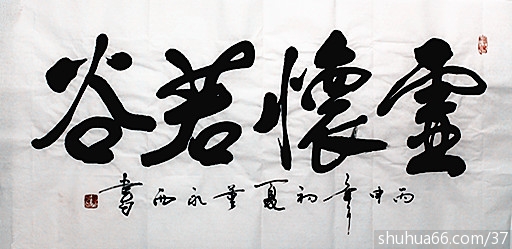 虚懷若谷
丙申年初夏董永西書
shuhua66.com/37